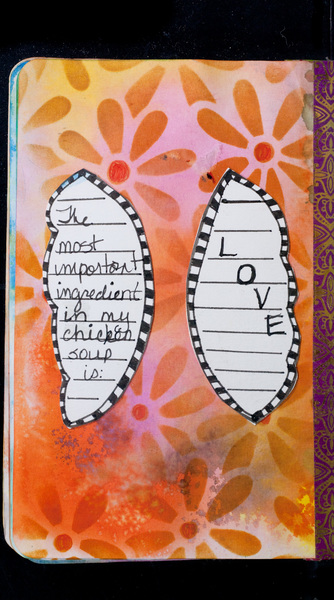 The
most
important
ingredient
in my
chicken
soup
is:
LOVE